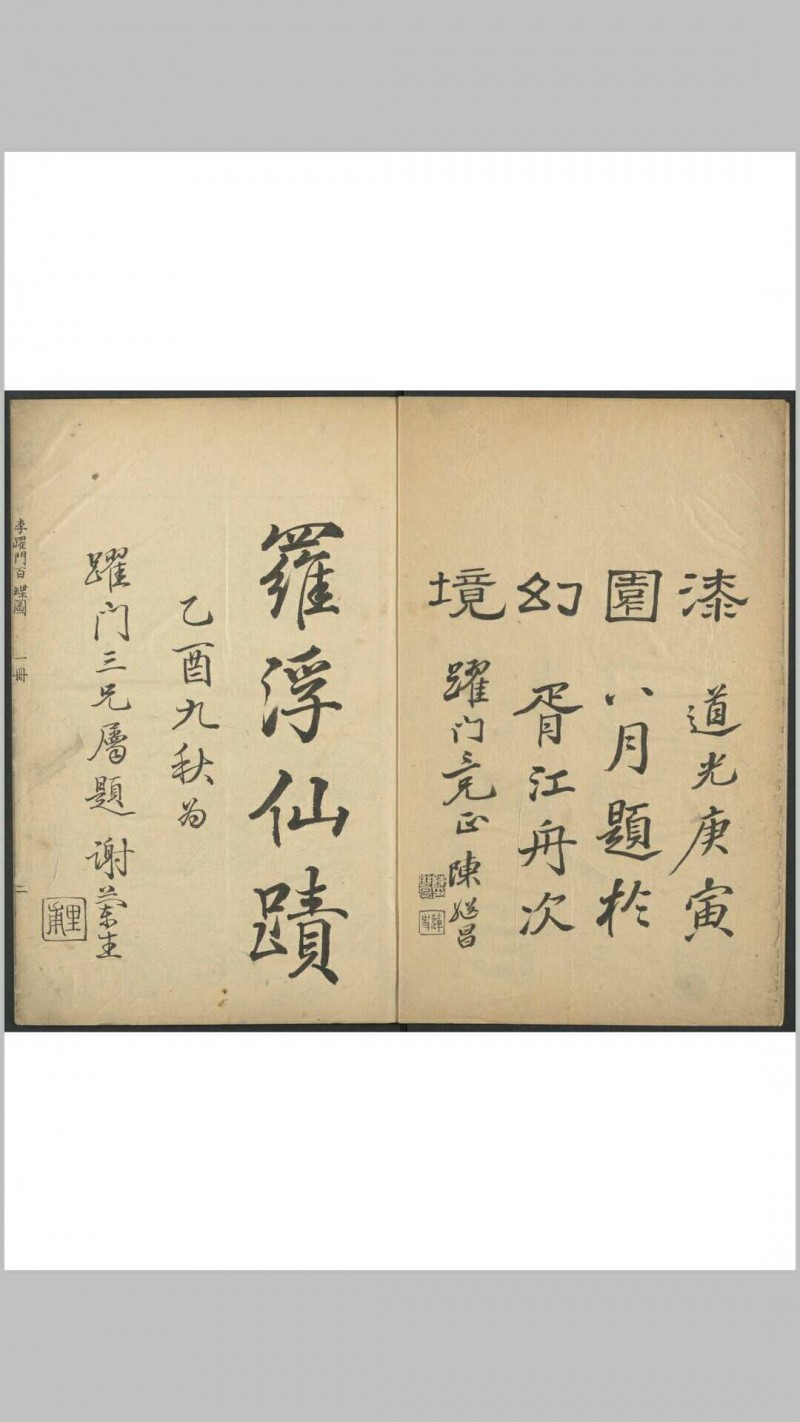 漆園幻境
道光庚寅
八月題於
胥江舟次
躍门亮正 陳繼昌
羅浮仙蹟
乙酉九秋为
躍门三兄屬題 谢蘭生
里甫
李躍門百蝶圖 一冊 二